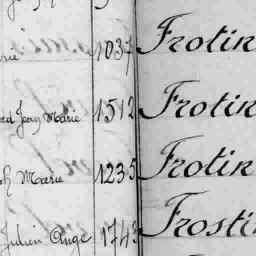 1037 Frotin
Jean Marie 1512 Frotin
h Marie 1235 Frotin
Julien Ange 1743 Frosti